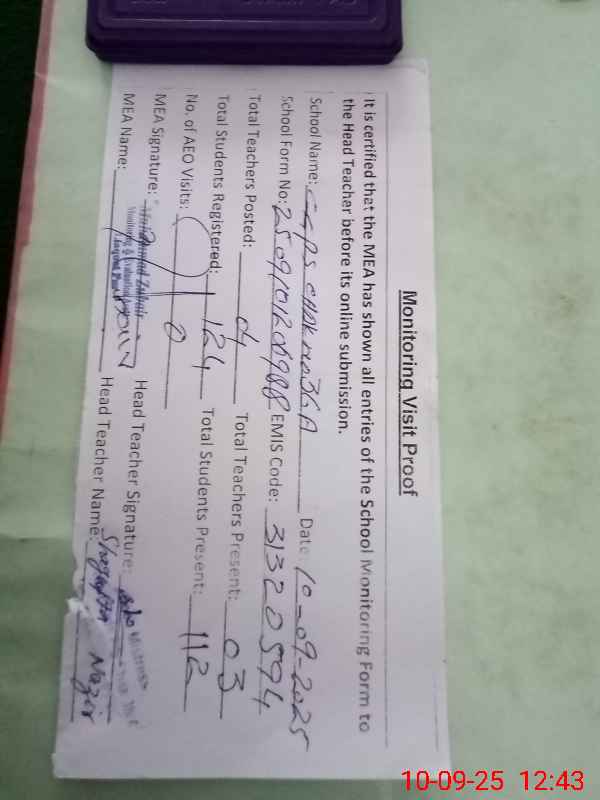 Monitoring Visit Proof
It is certified that the MEA has shown all entries of the School Monitoring Form to
the Head Teacher before its online submission.
School Name: GGPS CHAK NO. 36A Date: 10-09-2025
School Form No: EMIS Code: 31320594
Total Teachers Posted: 04 Total Teachers Present: 03
Total Students Registered: 124 Total Students Present: 112
No. of AEO Visits: 0
MEA Signature: Head Teacher Signature:
MEA Name: Head Teacher Name: Shagufta Nazir
10-09-25 12:43